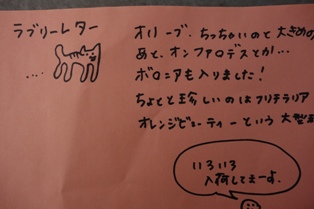 ラブリーレター
オリーブ、ちっちゃいのと大きめの
あと、オンファロデスとか…
ボロニアも入りました!
ちょっと珍しいのはフリチラリア
オレンジビューティーという大型
いろいろ
入荷してまーす。